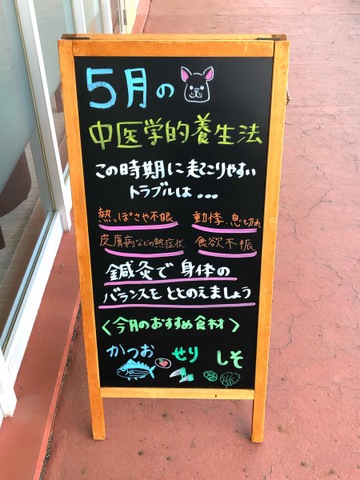 5月の
中医学的養生法
この時期に起こりやすい
トラブルは...
熱っぽさや不眠 動悸・息切れ
皮膚病などの熱症状 食欲不振
鍼灸で身体の
バランスをととのえましょう
<今月のおすすめ食材>
かつお せり しそ